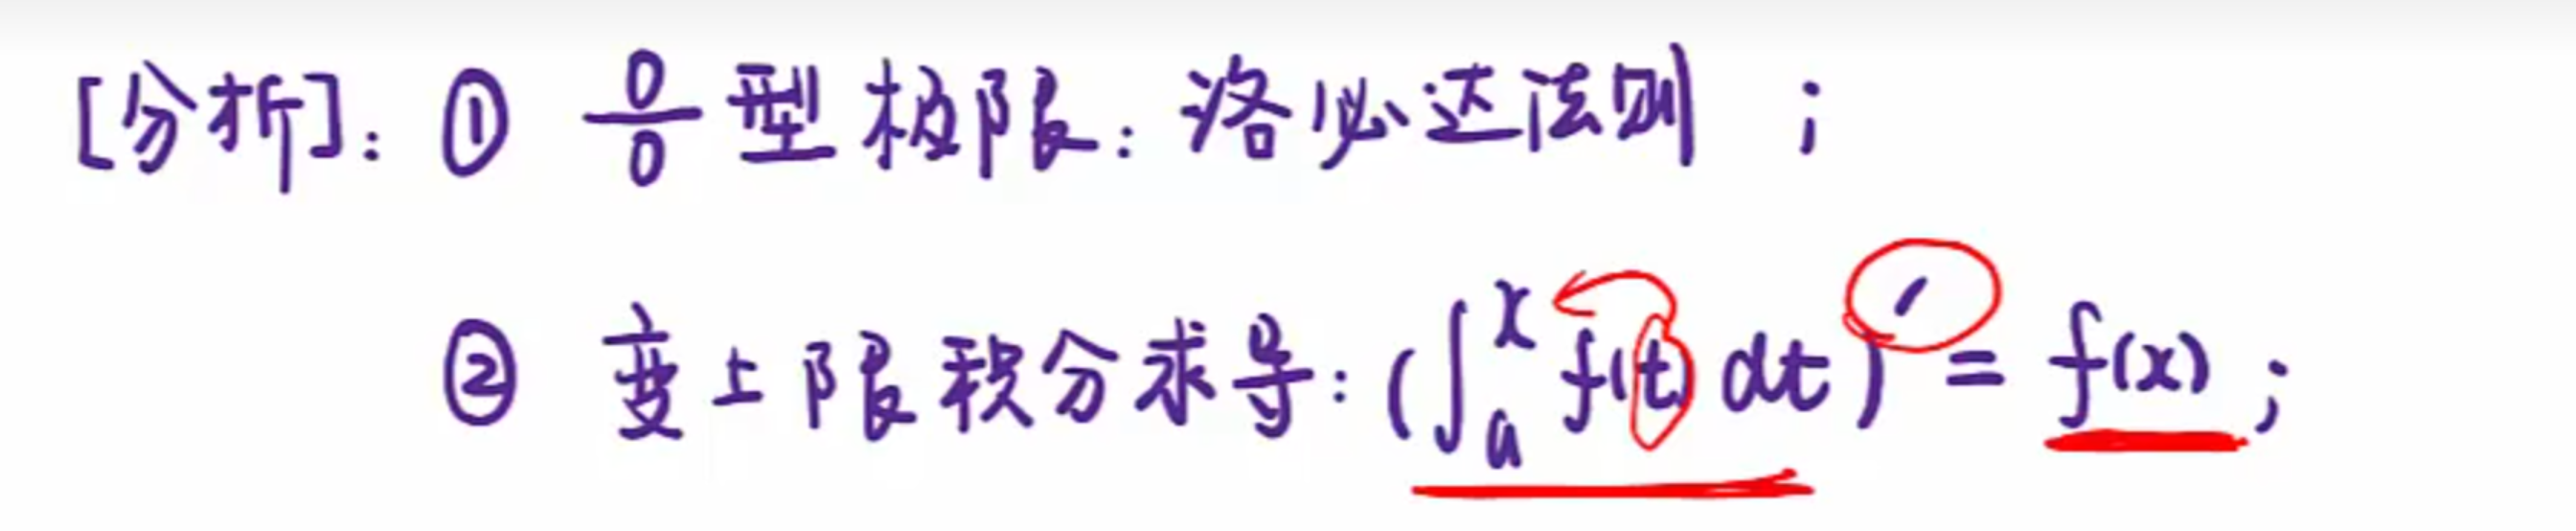 [分析]: ① 0/0 型极限: 洛必达法则 ;
② 变上限积分求导: (∫ₐˣ f(t) dt)′ = f(x) ;